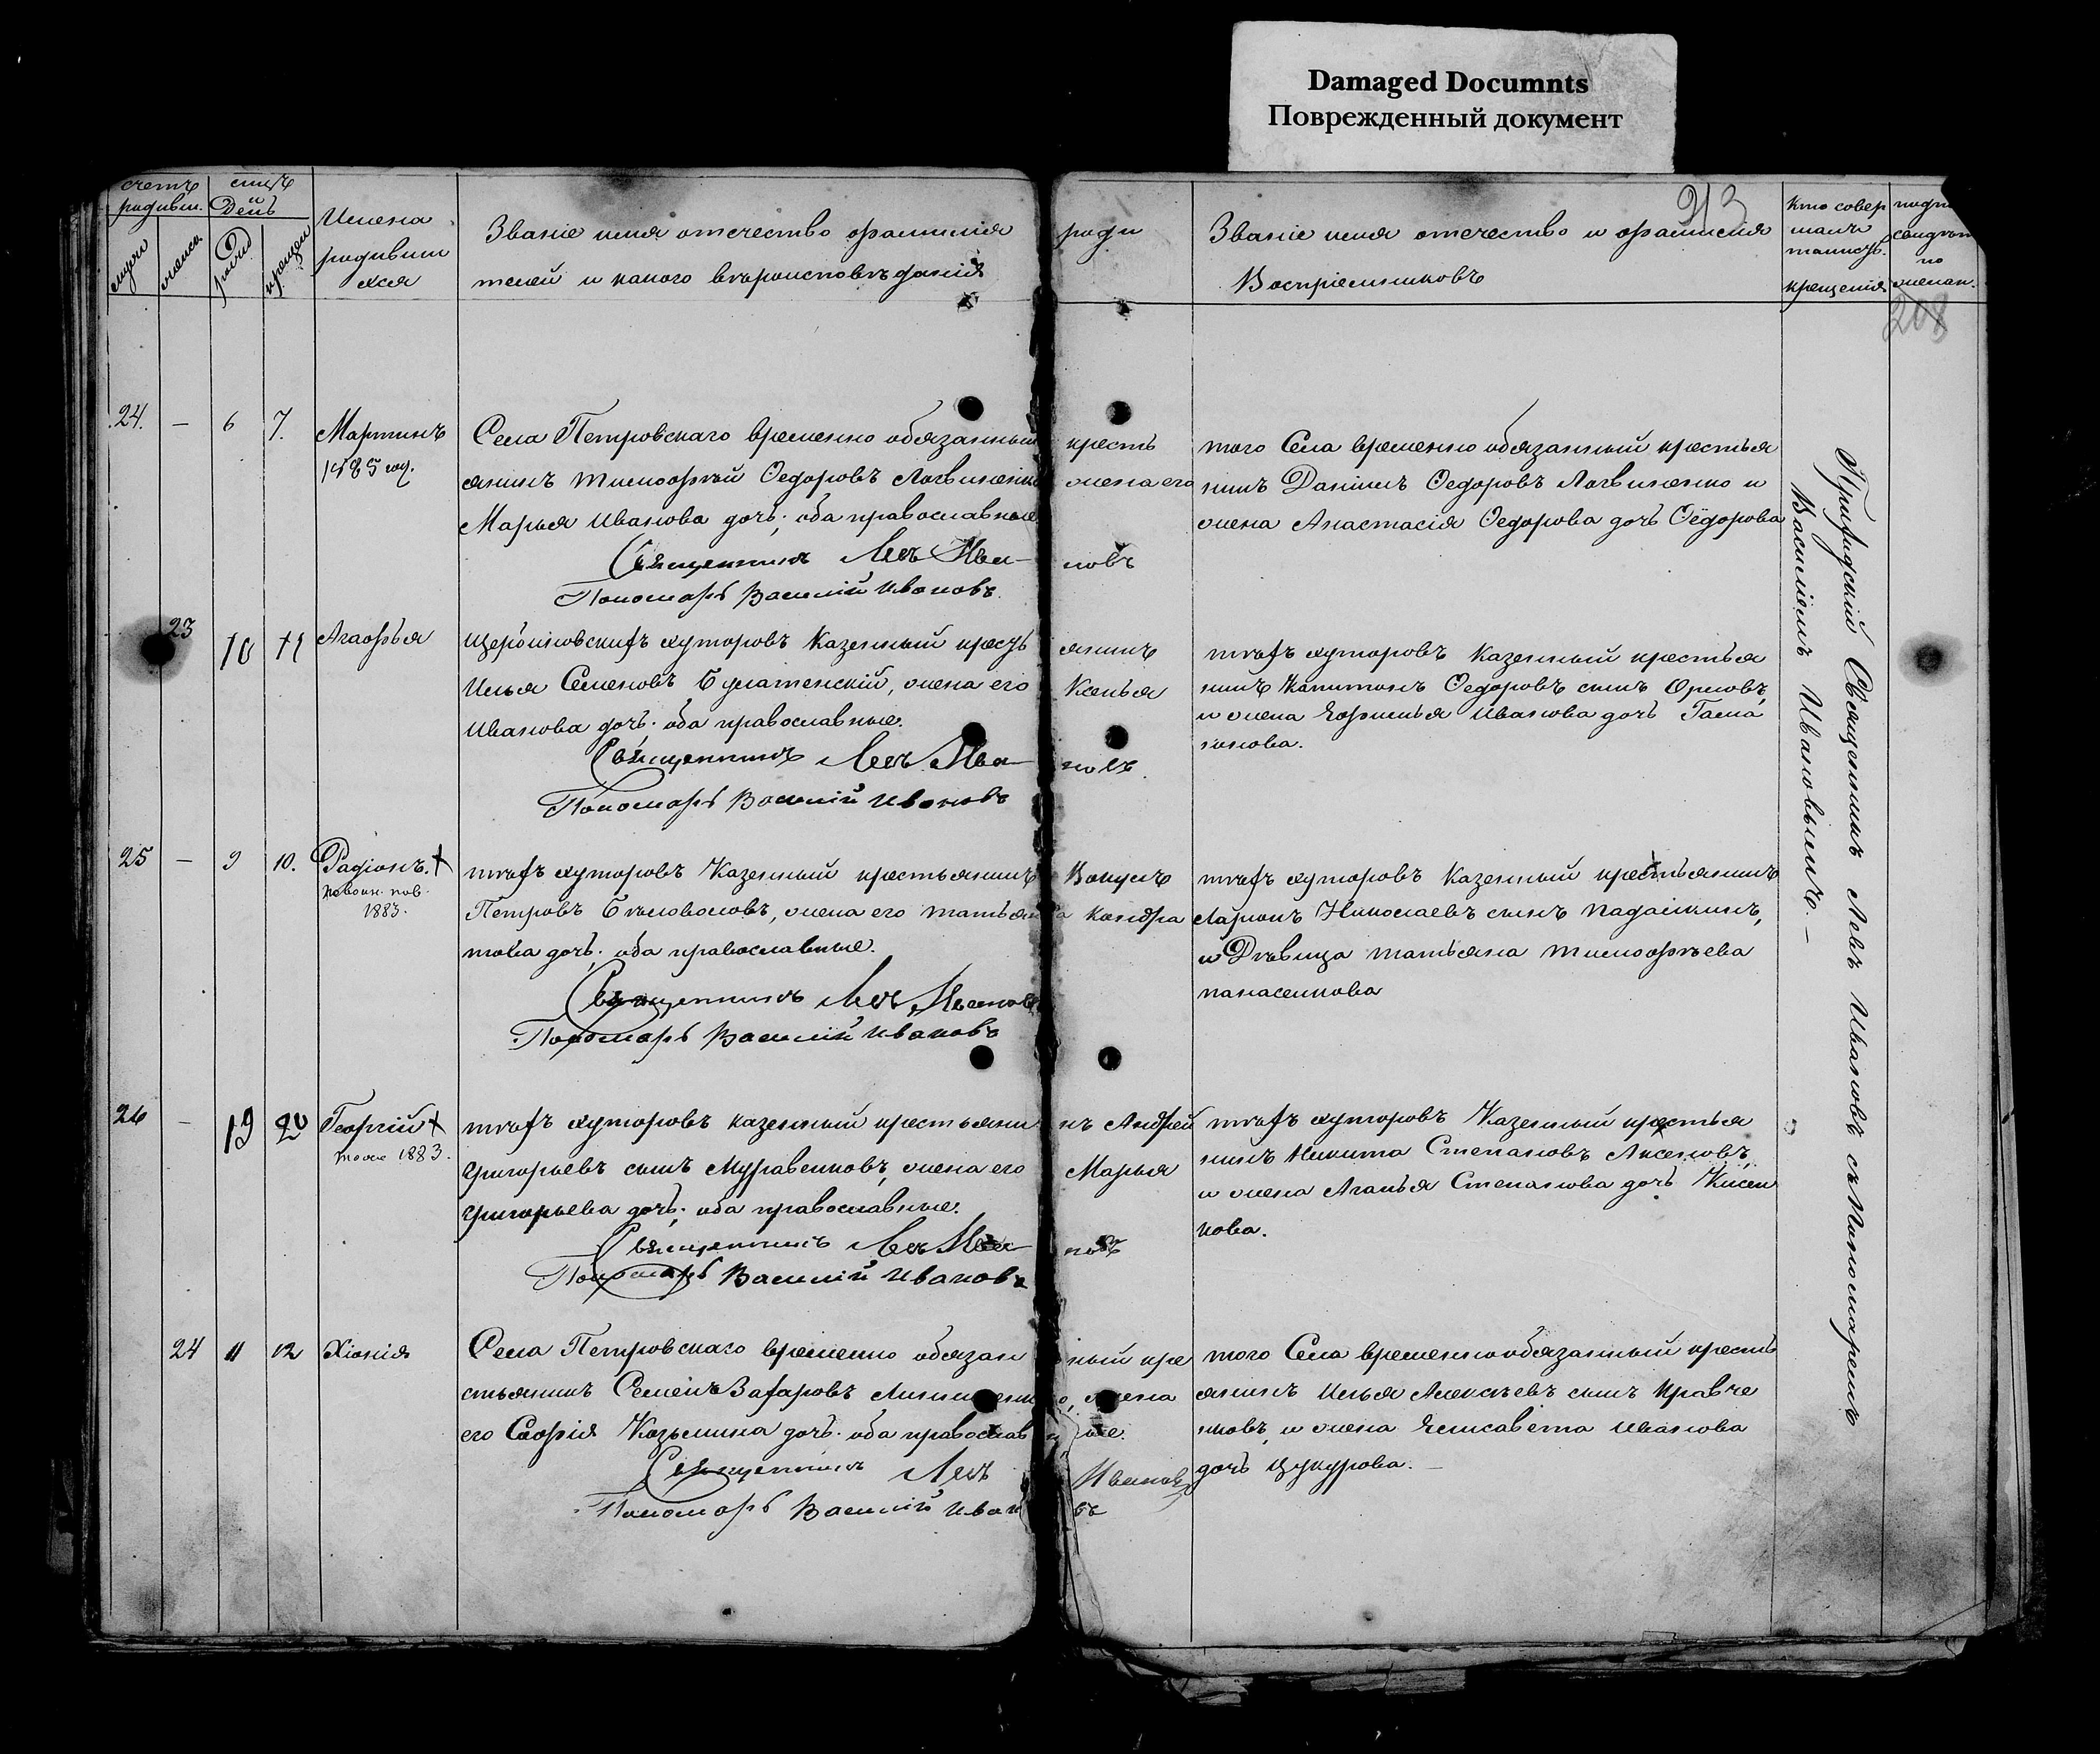 Damaged Documnts
Поврежденный документ
213
208
счетъ родивш.
мѣсяцъ и День
мужеска
женска
рожд
крещен
Имена родивши хся
Званіе имя отчество фамилія роди
телей и какого вѣроисповѣданія
Званіе имя отчество и фамилія
Воспріемниковъ
Кто совер
шалъ
таинст.
крещенія
24. — 6 7. Мартинъ
1885 год.
Села Петровскаго временно обязанный кресть
янинъ тимофѣй Ѳедоровъ Логвиненко жена его
Марья Иванова дочь; оба православные.
Священникъ Левъ Ива-новъ
Пономарь Василій Ивановъ
того Села временно обязанный крестья
нинъ Даніилъ Ѳедоровъ Логвиненко и
жена Анастасія Ѳедорова дочь Ѳедорова
23 10 11 Агафья
Щербиновскихъ хуторовъ Казенный крестьянинъ
Илья Семеновъ Булатенскій, жена его Ксенья
Иванова дочь. оба православные.
Священникъ Левъ Ива-новъ.
Пономарь Василій Ивановъ
тѣхъ хуторовъ Казенный крестья
нинъ Капитонъ Ѳедоровъ сынъ Орловъ,
и жена Ефимья Иванова дочь
25 — 9 10. Радіонъ. +
1883.
тѣхъ хуторовъ Казенный крестьянинъ Вакулъ
Петровъ Бѣловоловъ, жена его татьяна Кондра
това дочь. оба православные.
Священникъ Левъ Ивановъ
Пономарь Василій Ивановъ
тѣхъ хуторовъ Казенный крестьянинъ
Ларіонъ Николаевъ сынъ Падалкинъ,
и Дѣвица татьяна тимофѣева
панасенкова
26 — 19 20 Георгій +
тоже 1883.
тѣхъ хуторовъ казенный крестьянинъ Андрей
григорьевъ сынъ Муравенковъ, жена его Марья
григорьева дочь; оба православные.
Священникъ Левъ Ива-новъ
Пономарь Василій Ивановъ
тѣхъ хуторовъ Казенный крестья
нинъ Никита Степановъ Аксеновъ,
и жена Агапья Степанова дочь Кисен
кова.
24 11 12 Хіонія
Села Петровскаго временно обязанный кре
стьянинъ Семенъ Захаровъ жена
его Софія Козьмина дочь. оба православные.
Священникъ Левъ Ивановъ
Пономарь Василій Ивановъ
того Села временнообязанный кресть
янинъ Илья Алексѣевъ сынъ Кравче
нковъ, и жена Елисавета Иванова
дочь Цукурова. —
Приходскій Священникъ Левъ Ивановъ съ Пономаремъ
Василіемъ Ивановымъ. —